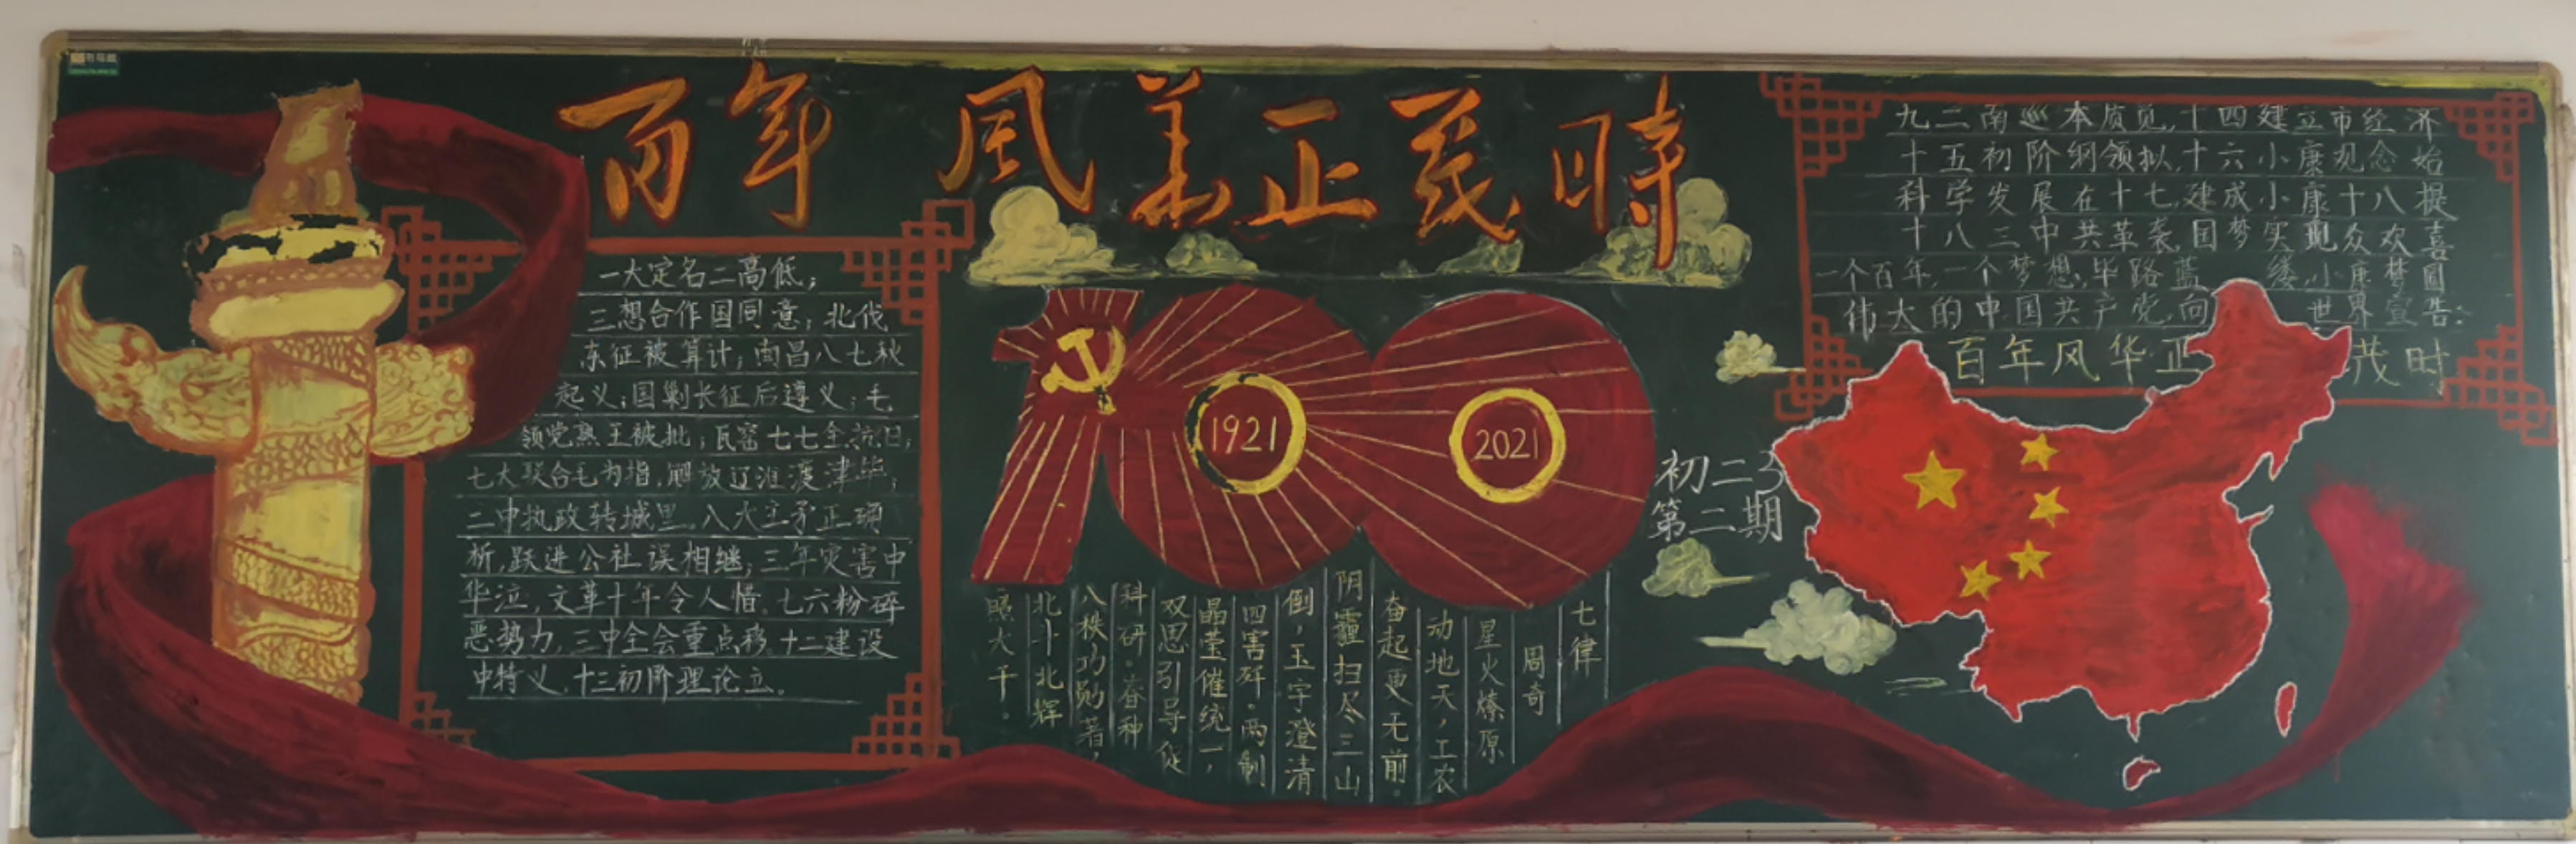 百年 风华正茂时
一大定名二高低;
三想合作国同意;北伐
东征被算计;南昌八七秋
起义;国剿长征后遵义;毛
领党熟王被批;瓦窑七七全抗日;
七大联合毛为指.解放辽淮渡津毕;
二中执政转城里.八大主矛正确
析,跃进公社误相继;三年灾害中
华泣,文革十年令人惜.七六粉碎
恶势力,三中全会重点移.十二建设
中特义.十三初阶理论立。
1921
2021
七律
周奇
星火燎原
动地天,工农
奋起更无前。
阴霾扫尽三山
倒,玉宇澄清
四害歼。两制
晶莹催统一,
双思引导促
科研。春种
八秩功勋著,
北斗北辉
照大千。
初二3
第二期
九二南巡本质见,十四建立市经济
十五初阶纲领拟,十六小康观念始
科学发展在十七,建成小康十八提
十八三中共革袭,国梦实现众欢喜
一个百年,一个梦想,毕路蓝缕,小康梦圆
伟大的中国共产党,向世界宣告:
百年风华正茂时